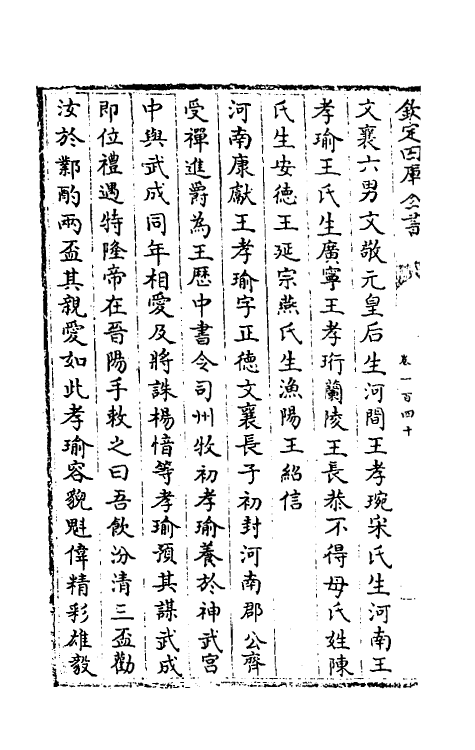 欽定四庫全書
卷一百四十
文襄六男文敬元皇后生河間王孝琬宋氏生河南王
孝瑜王氏生廣寧王孝珩蘭陵王長恭不得母氏姓陳
氏生安德王延宗燕氏生漁陽王紹信
河南康獻王孝瑜字正德文襄長子初封河南郡公齊
受禪進爵為王歴中書令司州牧初孝瑜養於神武宮
中與武成同年相愛及將誅楊愔等孝瑜預其謀武成
即位禮遇特隆帝在晉陽手敕之曰吾飲汾清三盃勸
汝於鄴酌兩盃其親愛如此孝瑜容貌魁偉精彩雄毅